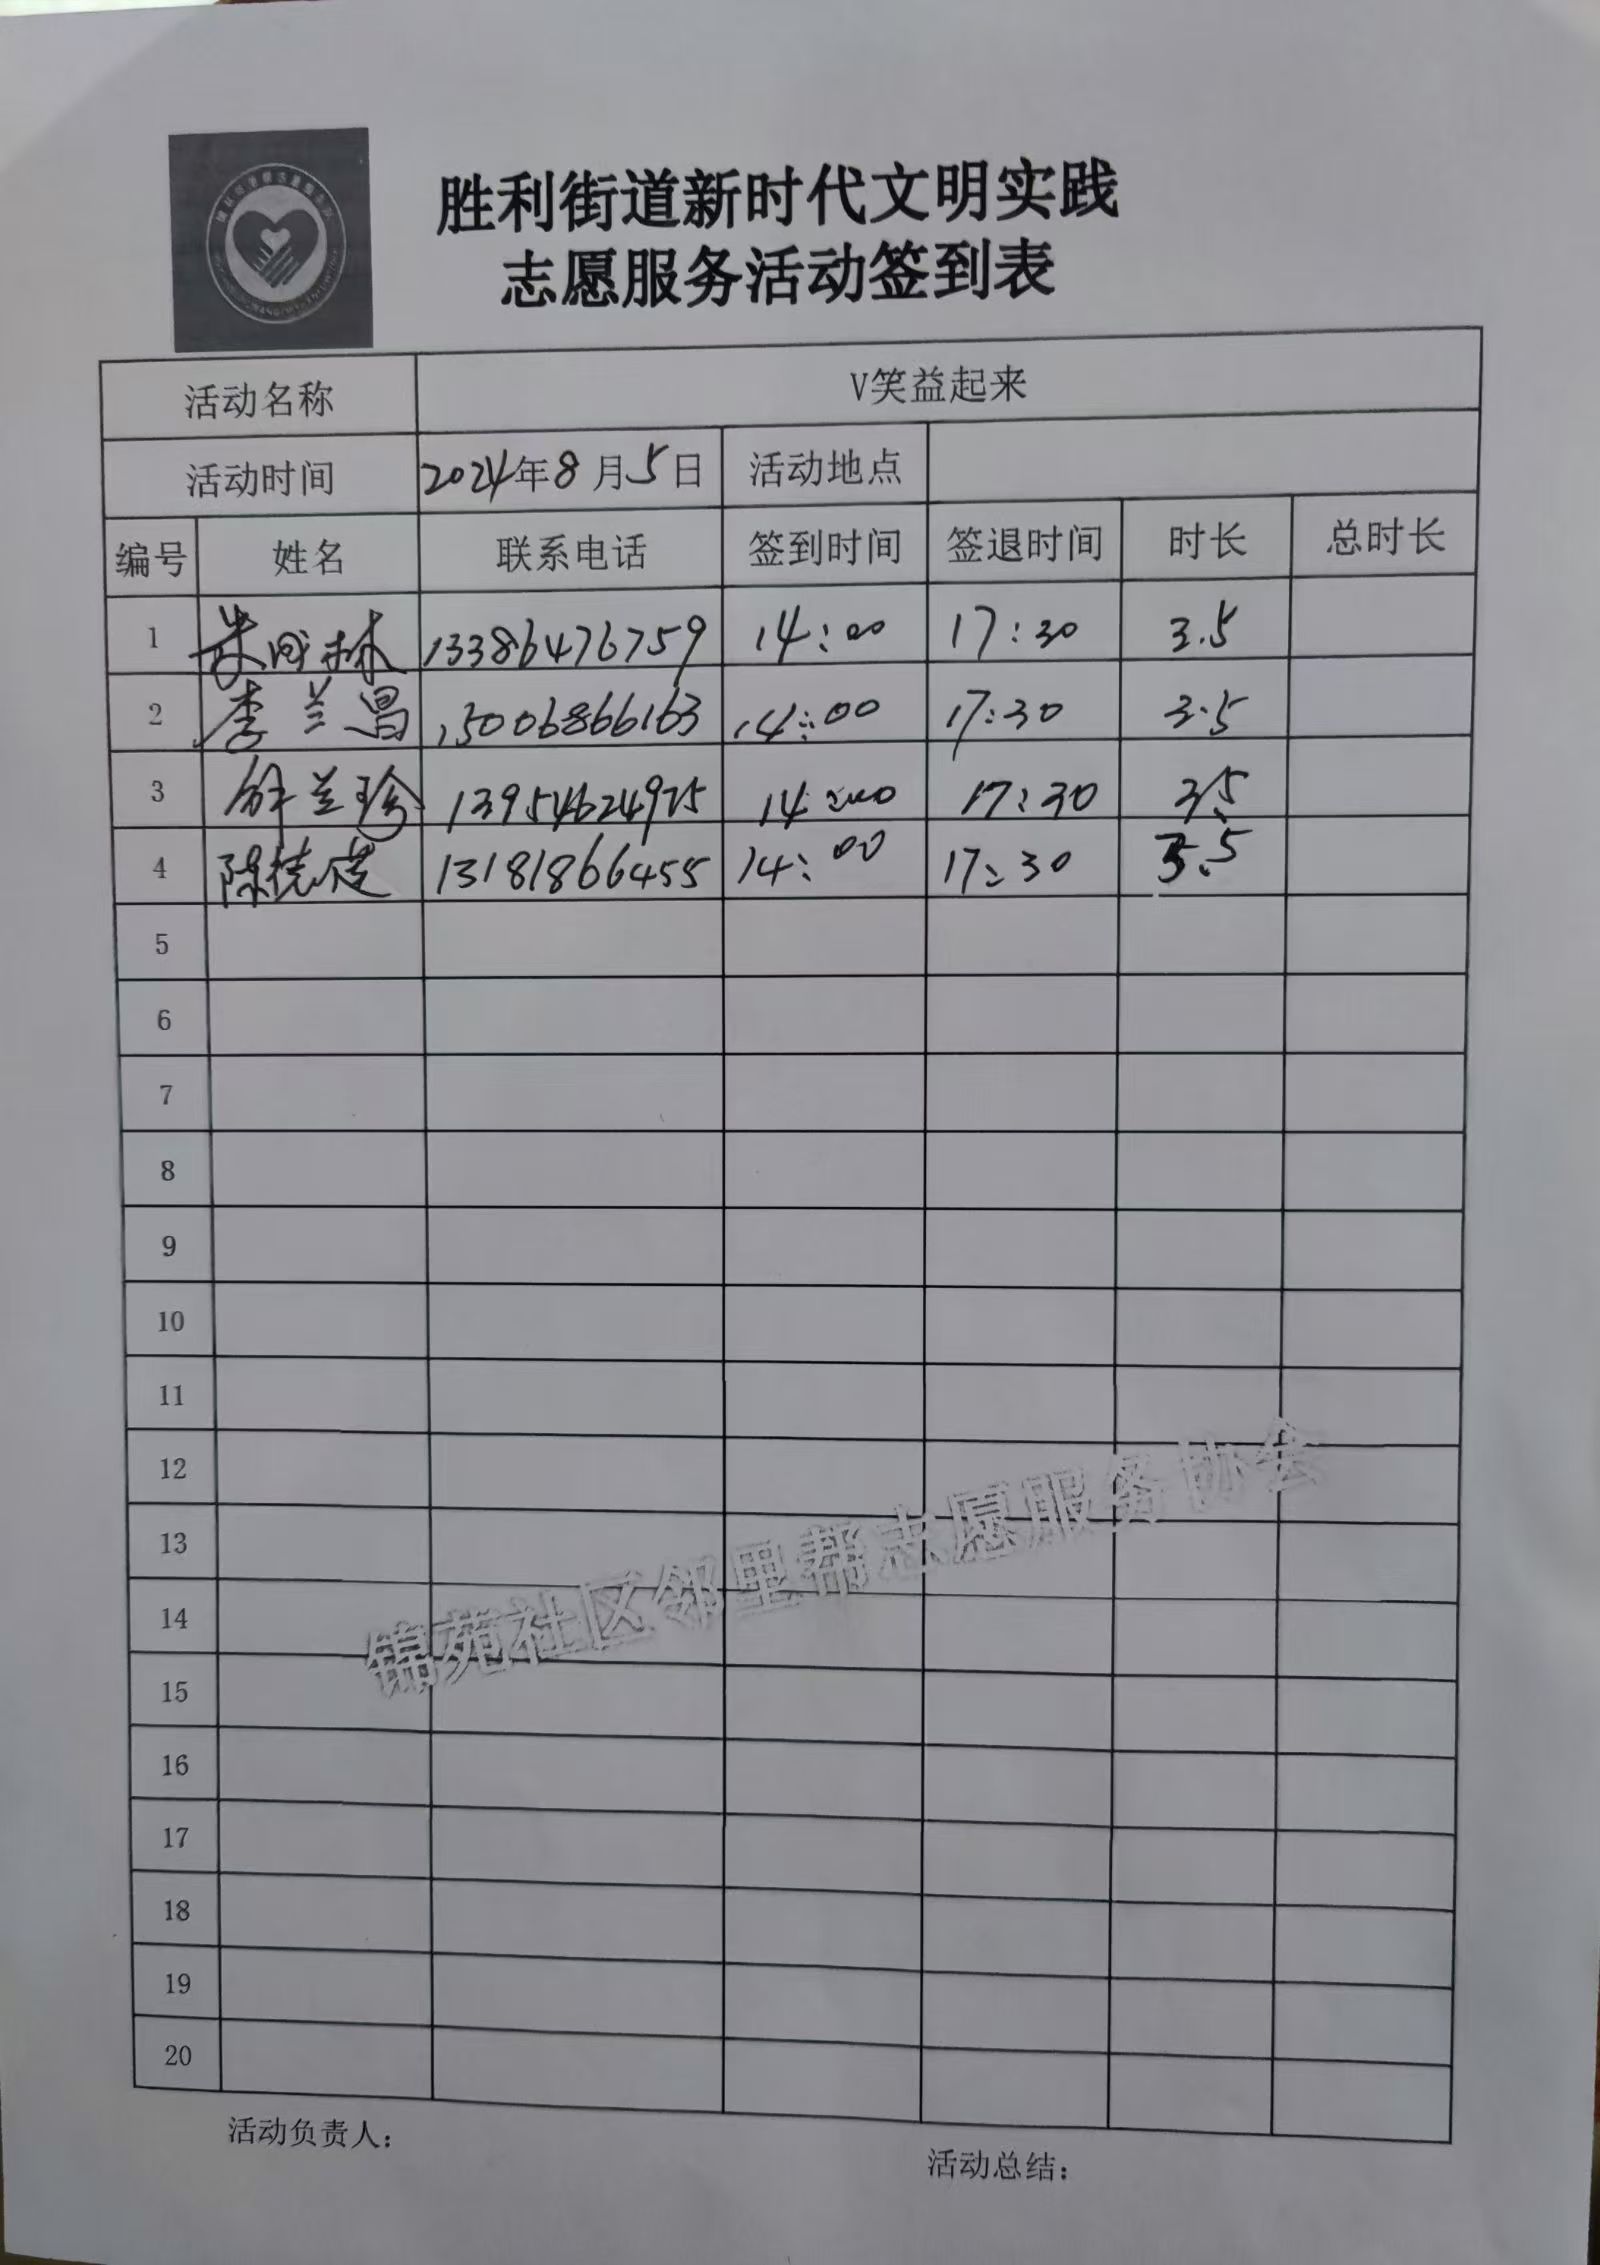 胜利街道新时代文明实践
志愿服务活动签到表
活动名称 V笑益起来
活动时间 2024年8月5日 活动地点
编号 姓名 联系电话 签到时间 签退时间 时长 总时长
1 林 13386476759 14:00 17:30 3.5
2 李兰昌 15006866163 14:00 17:30 3.5
3 兰珍 13954624975 14:00 17:30 3.5
4 陈 13181866455 14:00 17:30 3.5
5
6
7
8
9
10
11
12
13
14
15
16
17
18
19
20
锦苑社区邻里帮志愿服务协会
活动负责人：
活动总结：